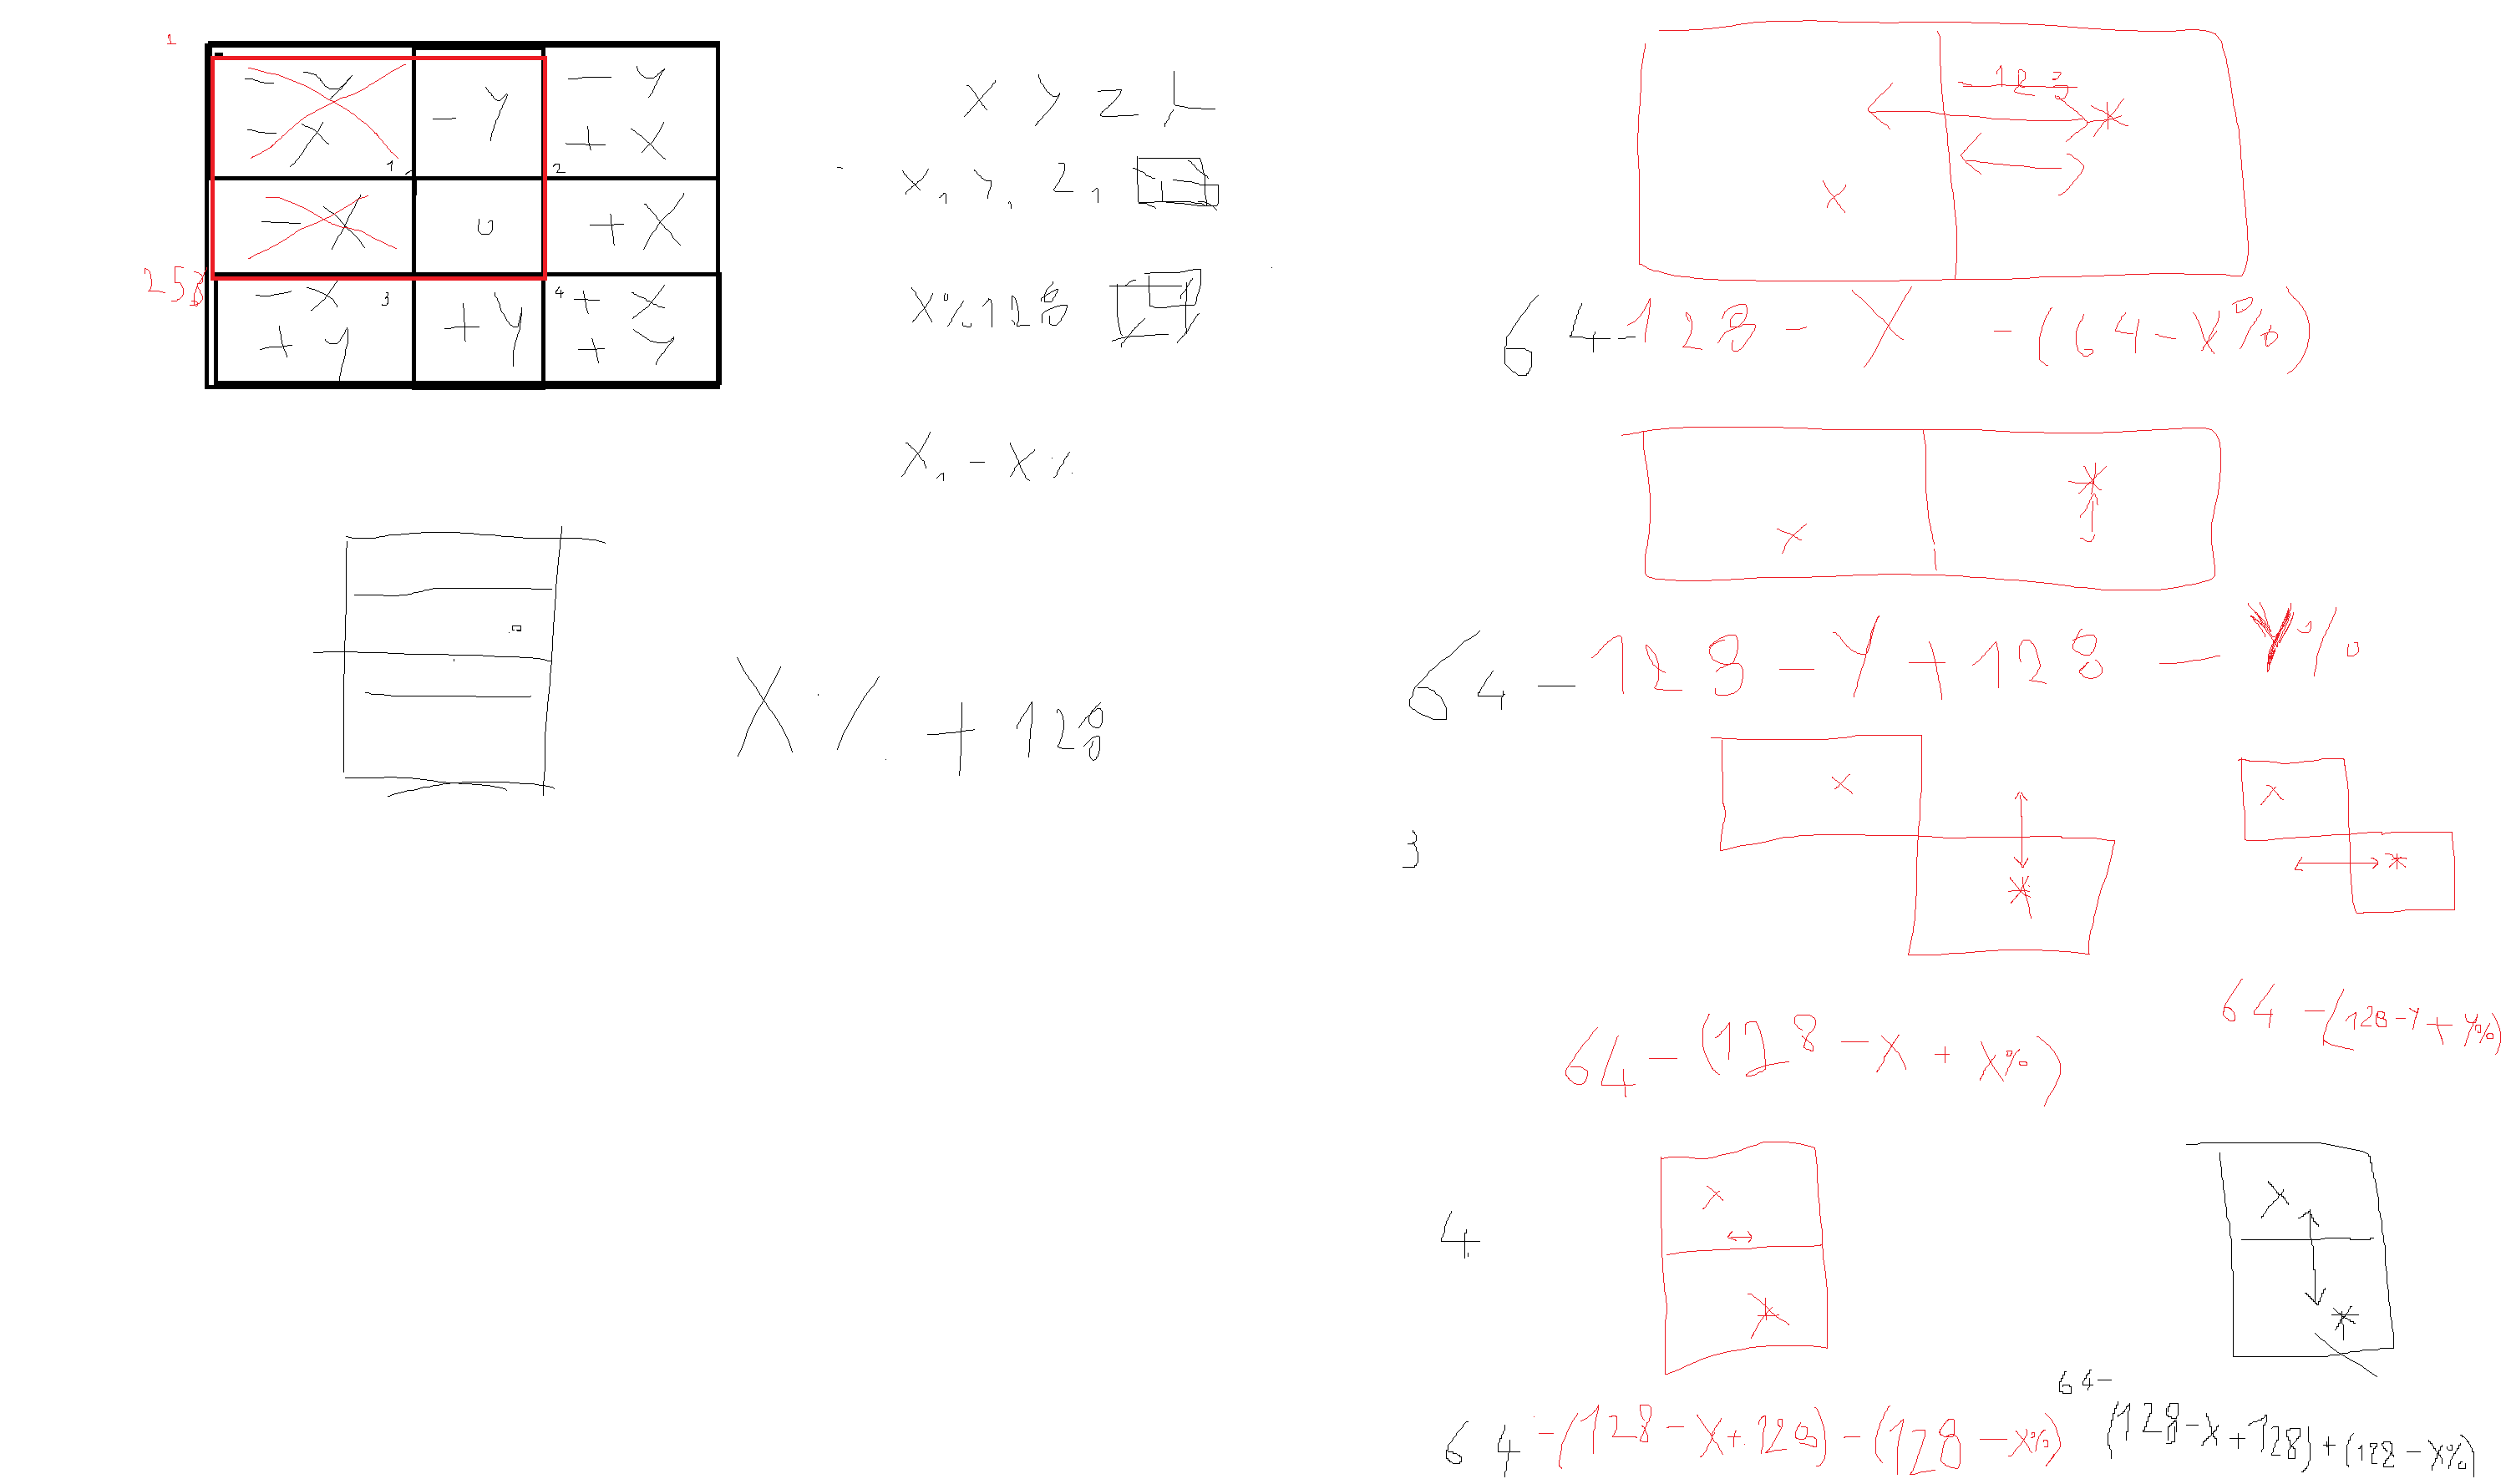 1
- y
- x
1
- y
- y
+ x
2
- x
0
+ x
258
- x
+ y
3
+ y
4
+ x
+ y
x y z
x, y, z,
x%128
x, - x%
x% + 128
128
*
x
64-128 - x - (64-x%)
*
x
64 - 128 - y + 128 - y%
3
x
*
x
*
64 - (128 - x + x%)
64 - (128-y + y%)
4
x
*
x
*
64 - (128 - x + 128) - (128 - x%)
64 -
(128-x+128) + (128-x%)